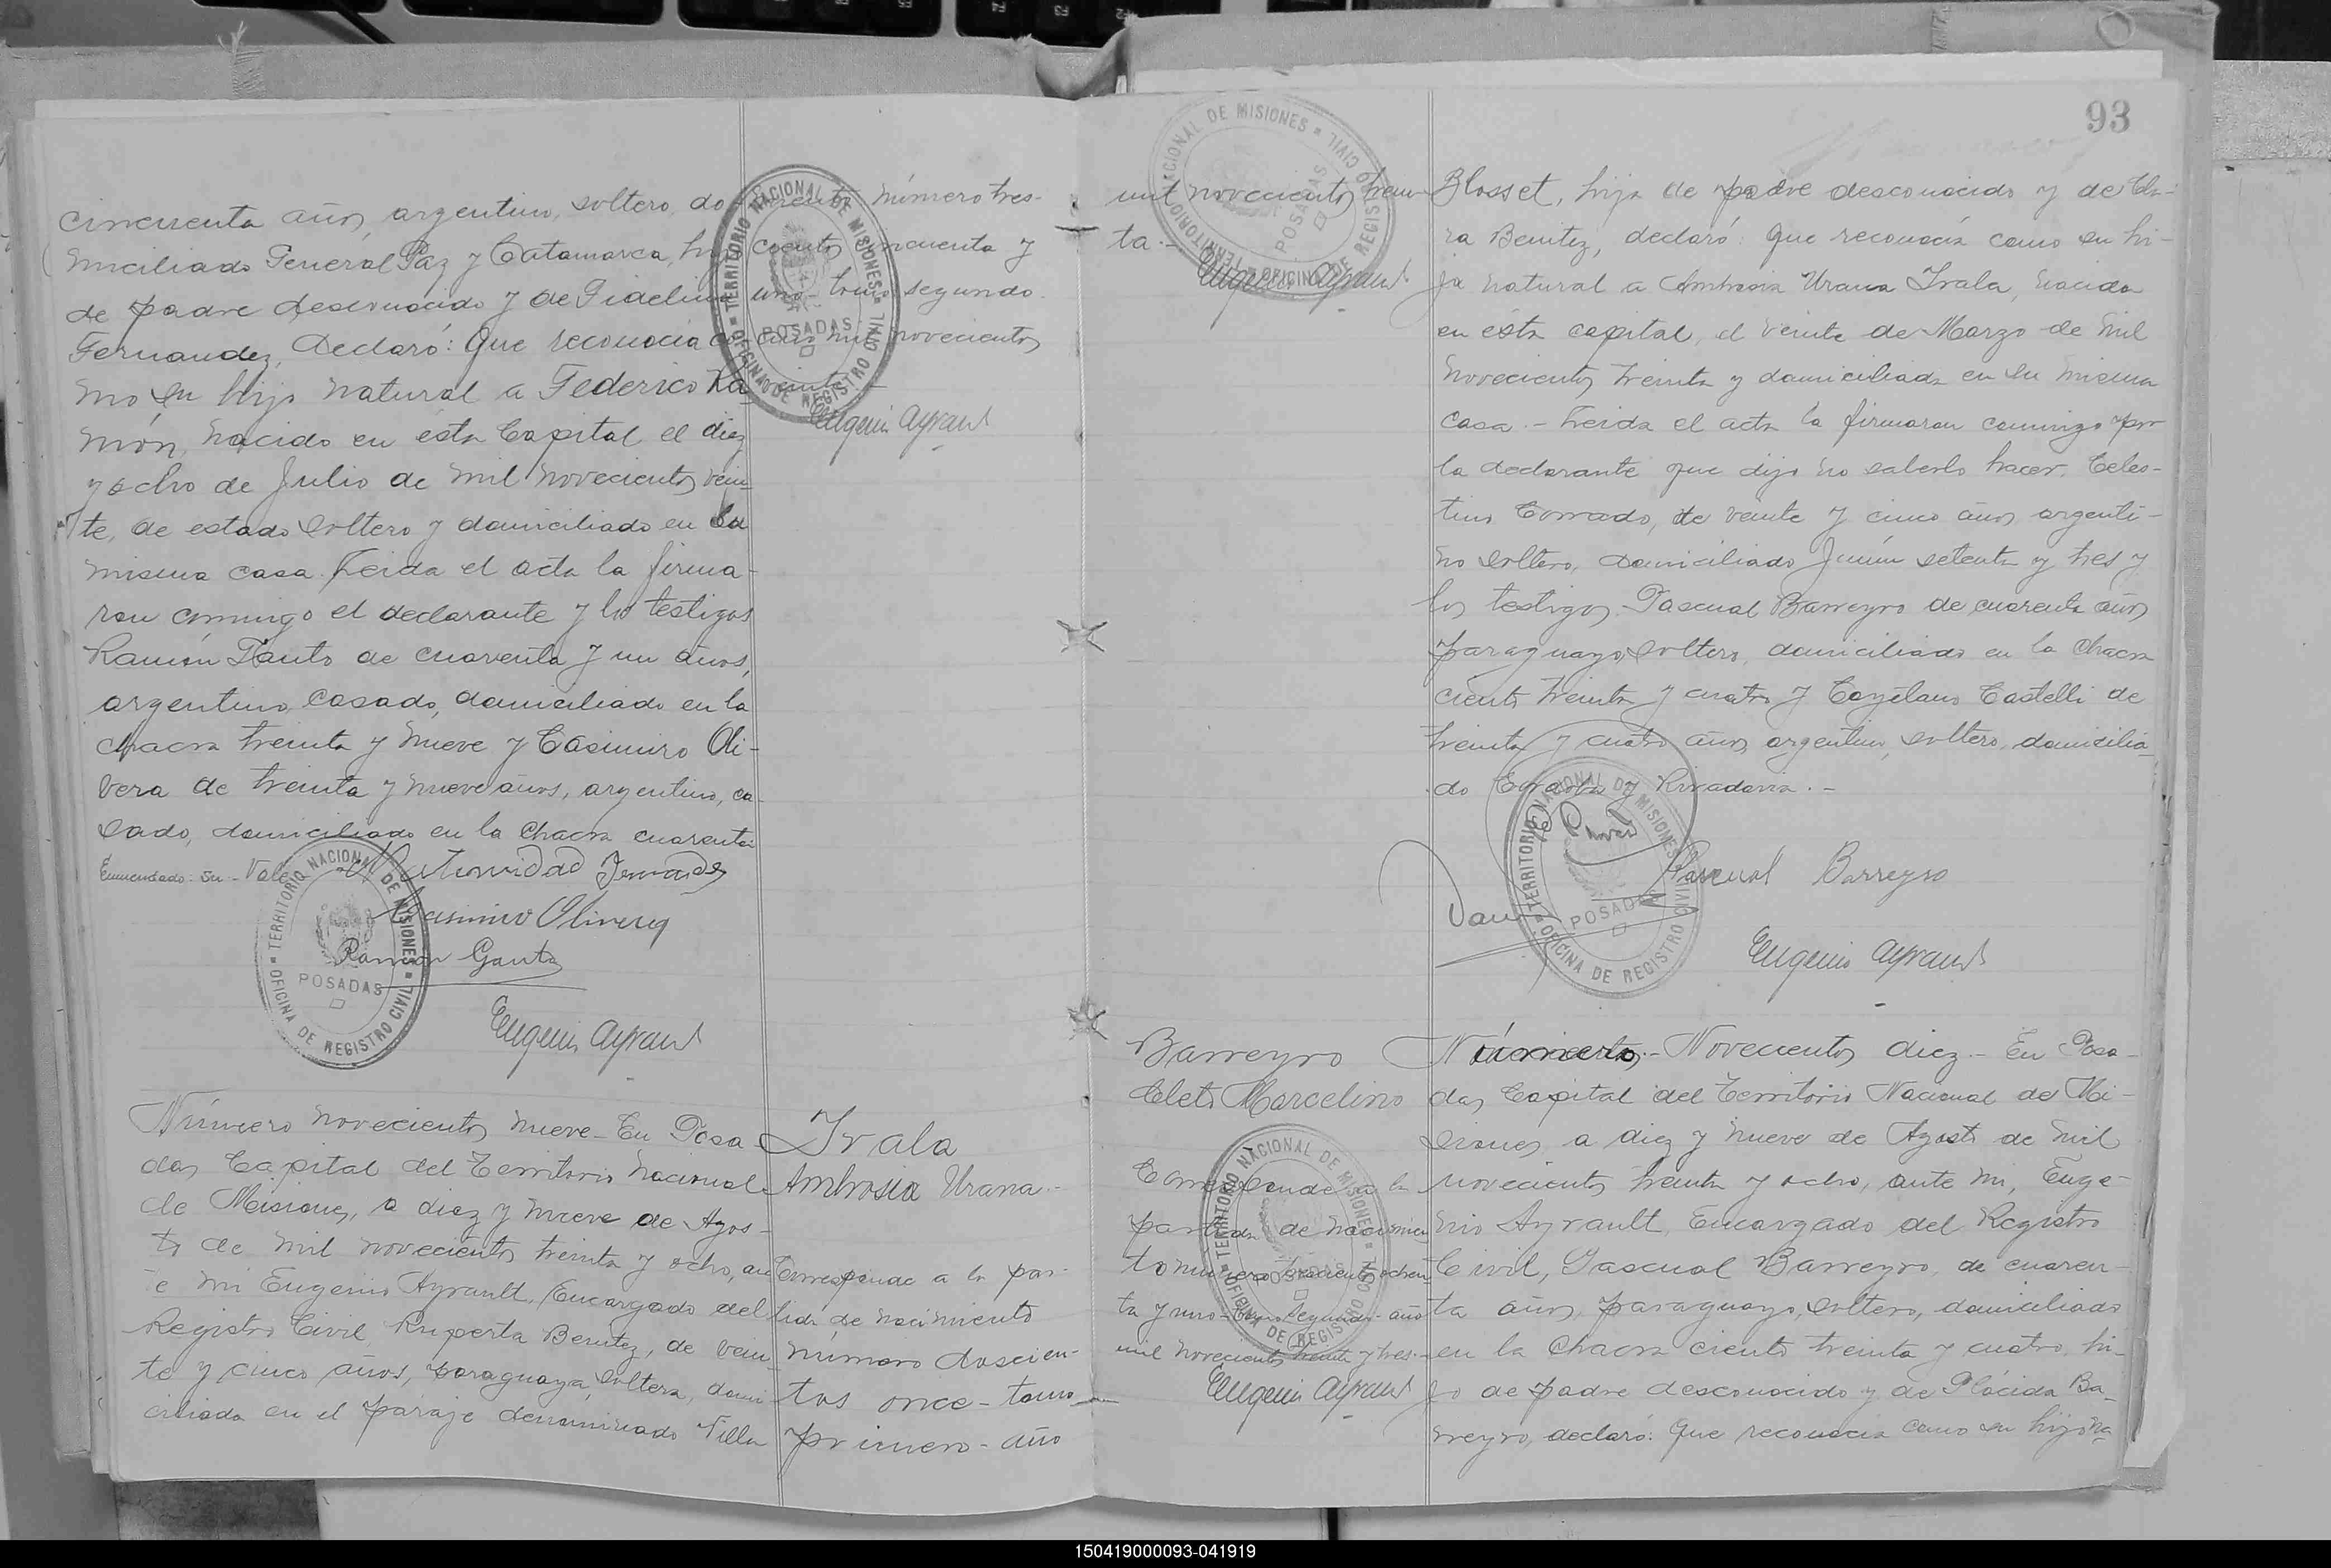 cincuenta años, argentino, soltero, do-
miciliado General Paz y Catamarca, hijo
de padre desconocido y de Fidelina
Fernandez, Declaró: Que reconocía co-
mo su hijo natural a Federico Ra-
món, nacido en ésta Capital el diez
y ocho de Julio de mil novecientos vein-
te, de estado soltero y domiciliado en su
misma casa. Leida el acta la firma-
ron conmigo el declarante y los testigos
Ramón Gauto de cuarenta y un años,
argentino, casado, domiciliado en la
chacra treinta y nueve y Casimiro Oli-
vera de treinta y nueve años, argentino, ca-
sado, domiciliado en la chacra cuarenta
Enmendado: su - Vale
Fernandez
Casimiro Olivera
Ramón Gauto
Eugenio Ayrault
TERRITORIO NACIONAL DE MISIONES
POSADAS
OFICINA DE REGISTRO CIVIL
número tres-
cientos cincuenta y
uno - tomo segundo
mil novecientos
veinte
Eugenio Ayrault
TERRITORIO NACIONAL DE MISIONES
POSADAS
OFICINA DE REGISTRO CIVIL
Número novecientos nueve - En Posa-
das Capital del Territorio Nacional
de Misiones, a diez y nueve de Agos-
to de mil novecientos treinta y ocho, an-
te mi Eugenio Ayrault, Encargado del
Registro Civil, Ruperta Benitez, de vein-
te y cinco años, paraguaya, soltera, domi-
ciliada en el paraje denominado Villa
Irala
Ambrosia Urana -
Corresponde a la par-
tida de nacimiento
número doscien-
tos once - tomo
primero - año
93
mil novecientos trein-
ta -
Eugenio Ayrault
TERRITORIO NACIONAL DE MISIONES
POSADAS
OFICINA DE REGISTRO CIVIL
Blosset, hija de padre desconocido y de Cla-
ra Benitez, declaró: Que reconocía como su hi-
ja natural a Ambrosia Urana Irala, nacida
en ésta capital, el veinte de Marzo de mil
novecientos treinta y domiciliada en su misma
casa. - Leida el acta la firmaron conmigo por
la declarante que dijo no saberlo hacer, Celes-
tino Conrado, de veinte y cinco años, argenti-
no soltero, domiciliado Junín setenta y tres y
los testigos Pascual Barreyro de cuarenta años
paraguayo, soltero, domiciliado en la chacra
ciento treinta y cuatro y Cayetano Castelli de
treinta y cuatro años, argentino, soltero, domicilia-
do y Rivadavia. -
Pascual Barreyro
Eugenio Ayrault
TERRITORIO NACIONAL DE MISIONES
POSADAS
OFICINA DE REGISTRO CIVIL
Barreyro
Cleto Marcelino
Corresponde a la
partida de nacimien-
to número trescientos ochen-
ta y uno - tomo segundo - año
mil novecientos treinta y tres -
Eugenio Ayrault
TERRITORIO NACIONAL DE MISIONES
POSADAS
OFICINA DE REGISTRO CIVIL
Número - Novecientos diez - En Posa-
das Capital del Territorio Nacional de Mi-
siones, a diez y nueve de Agosto de mil
novecientos treinta y ocho, ante mi, Euge-
nio Ayrault, Encargado del Registro
Civil, Pascual Barreyro, de cuaren-
ta años, paraguayo, soltero, domiciliado
en la chacra ciento treinta y cuatro, hi-
jo de padre desconocido y de Plácida Ba-
rreyro, declaró: Que reconocía como su hijo na-
150419000093-041919